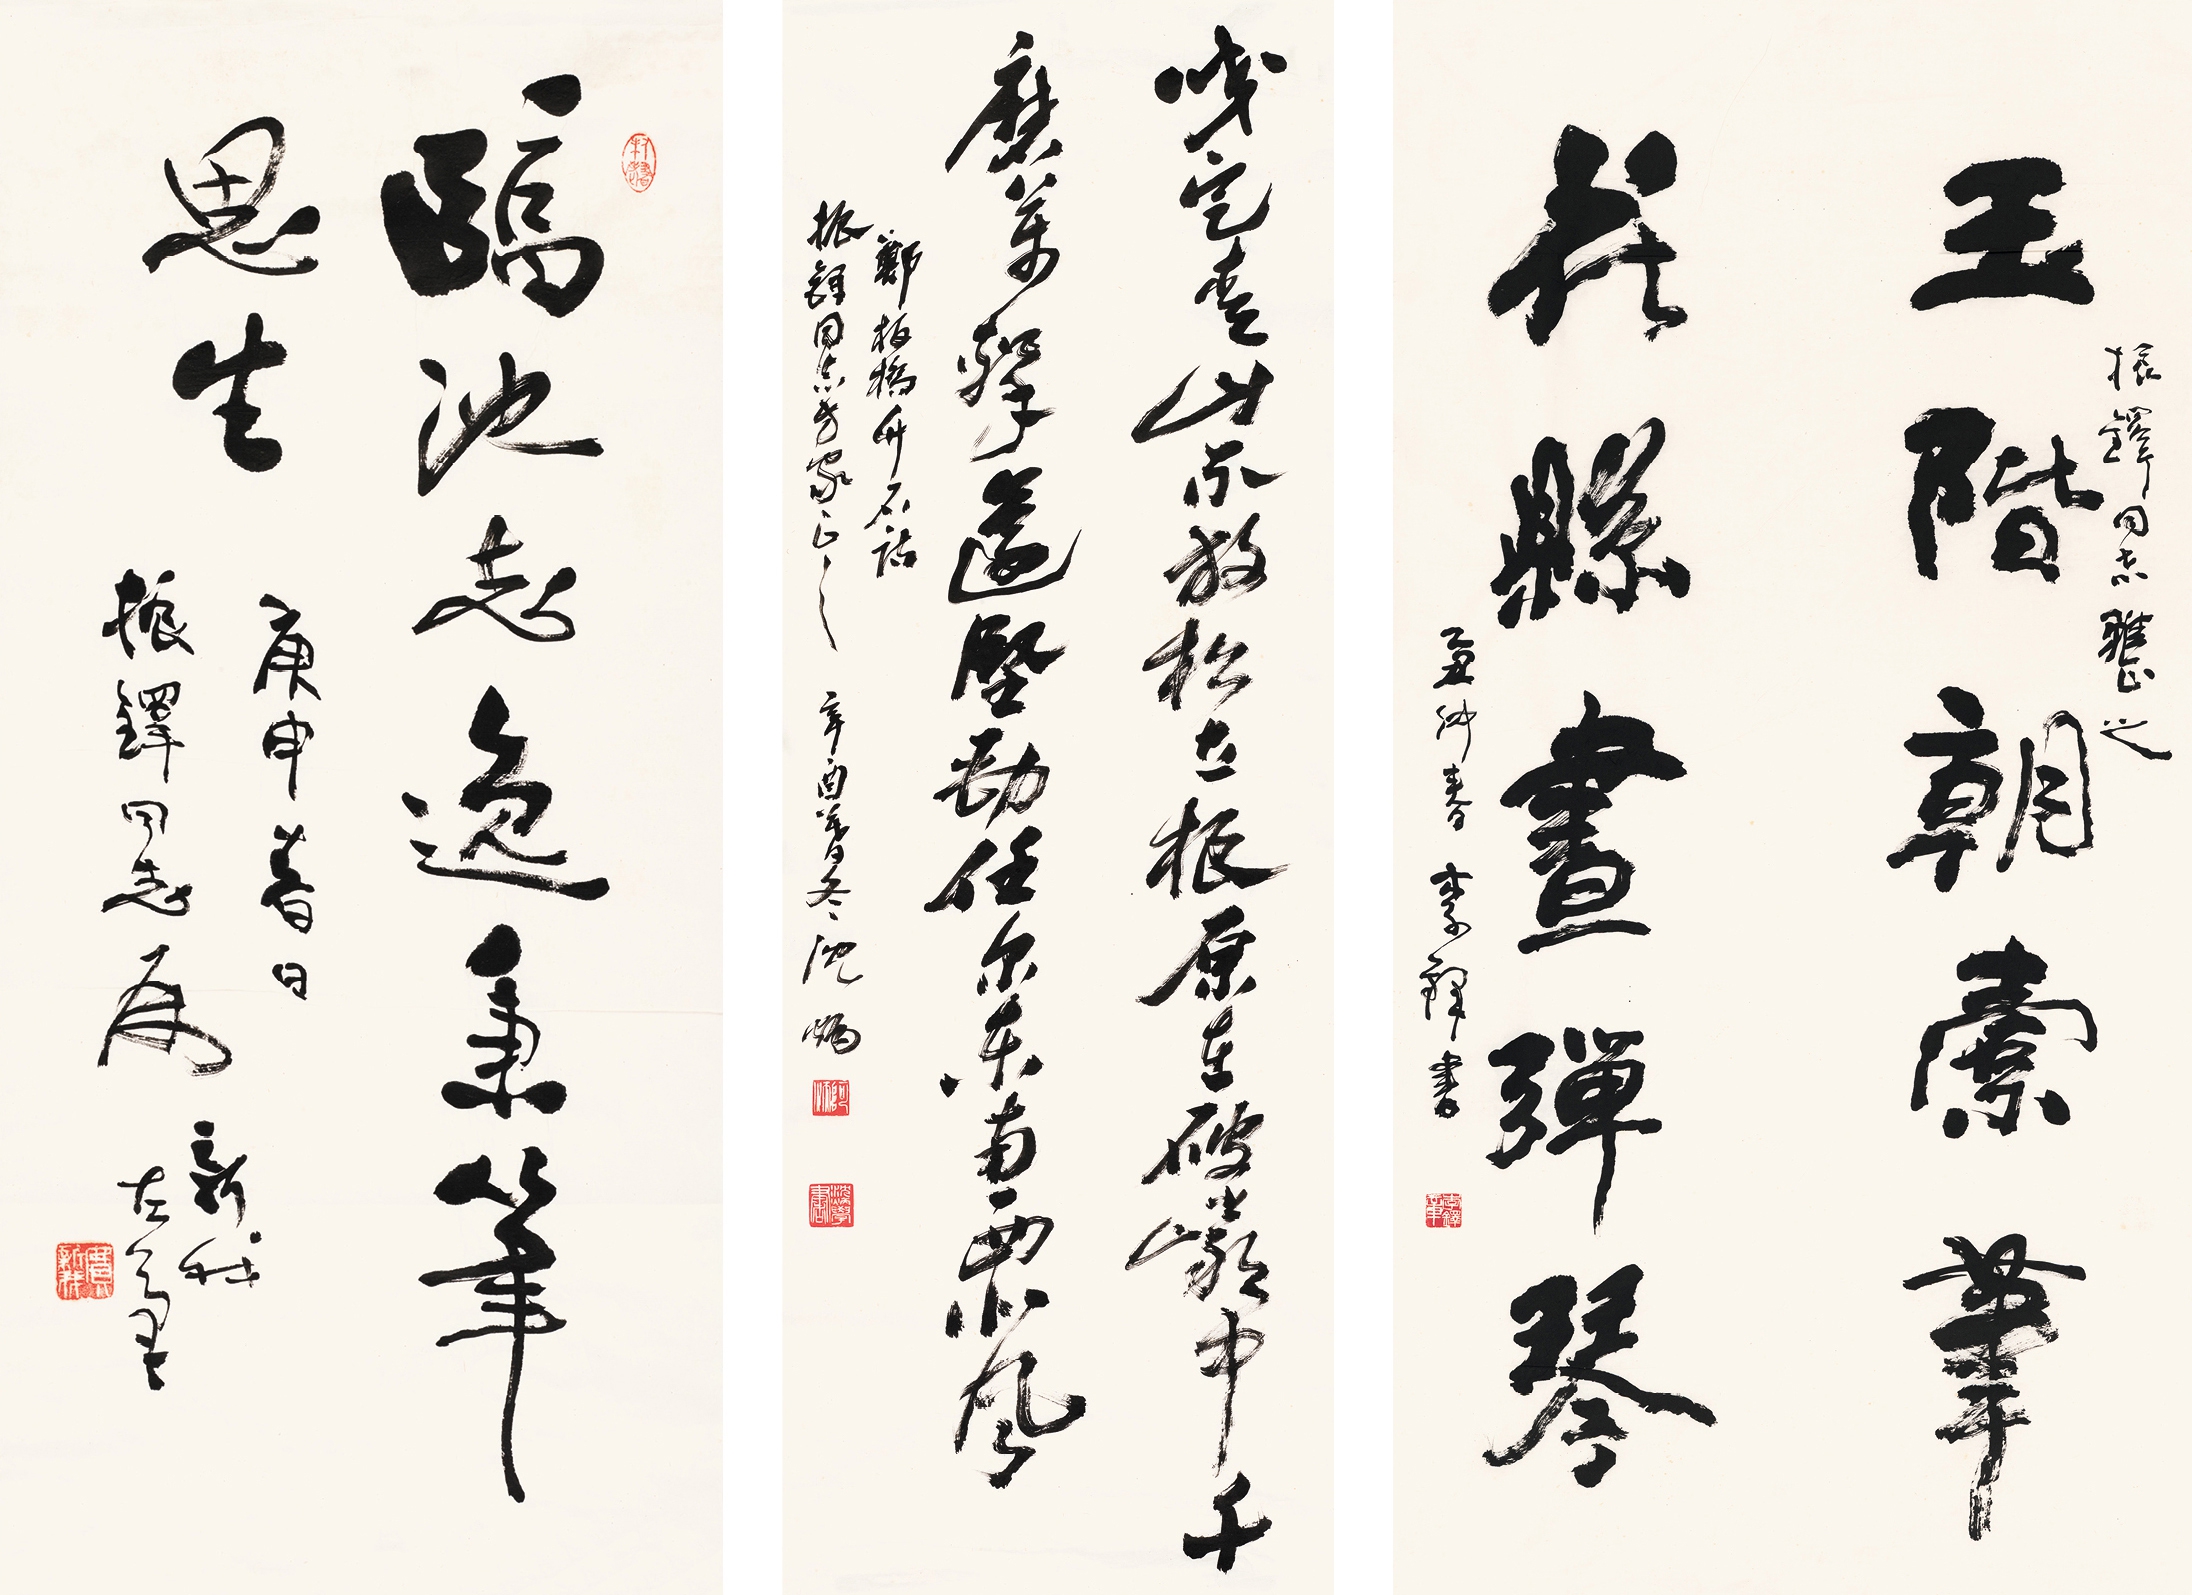 振鐸同志雅正之
玉階朝索筆
花縣晝彈琴
乙丑仲春 李鐸書
咬定青山不放松立根原在破巖中千
磨萬擊還堅勁任尔東南西北風
鄭板橋竹石詩
振鐸同志方家正之 辛酉冬 沈鵬
臨池志逸秉筆
思生
庚申春日
振鐸同志屬
新我
左筆